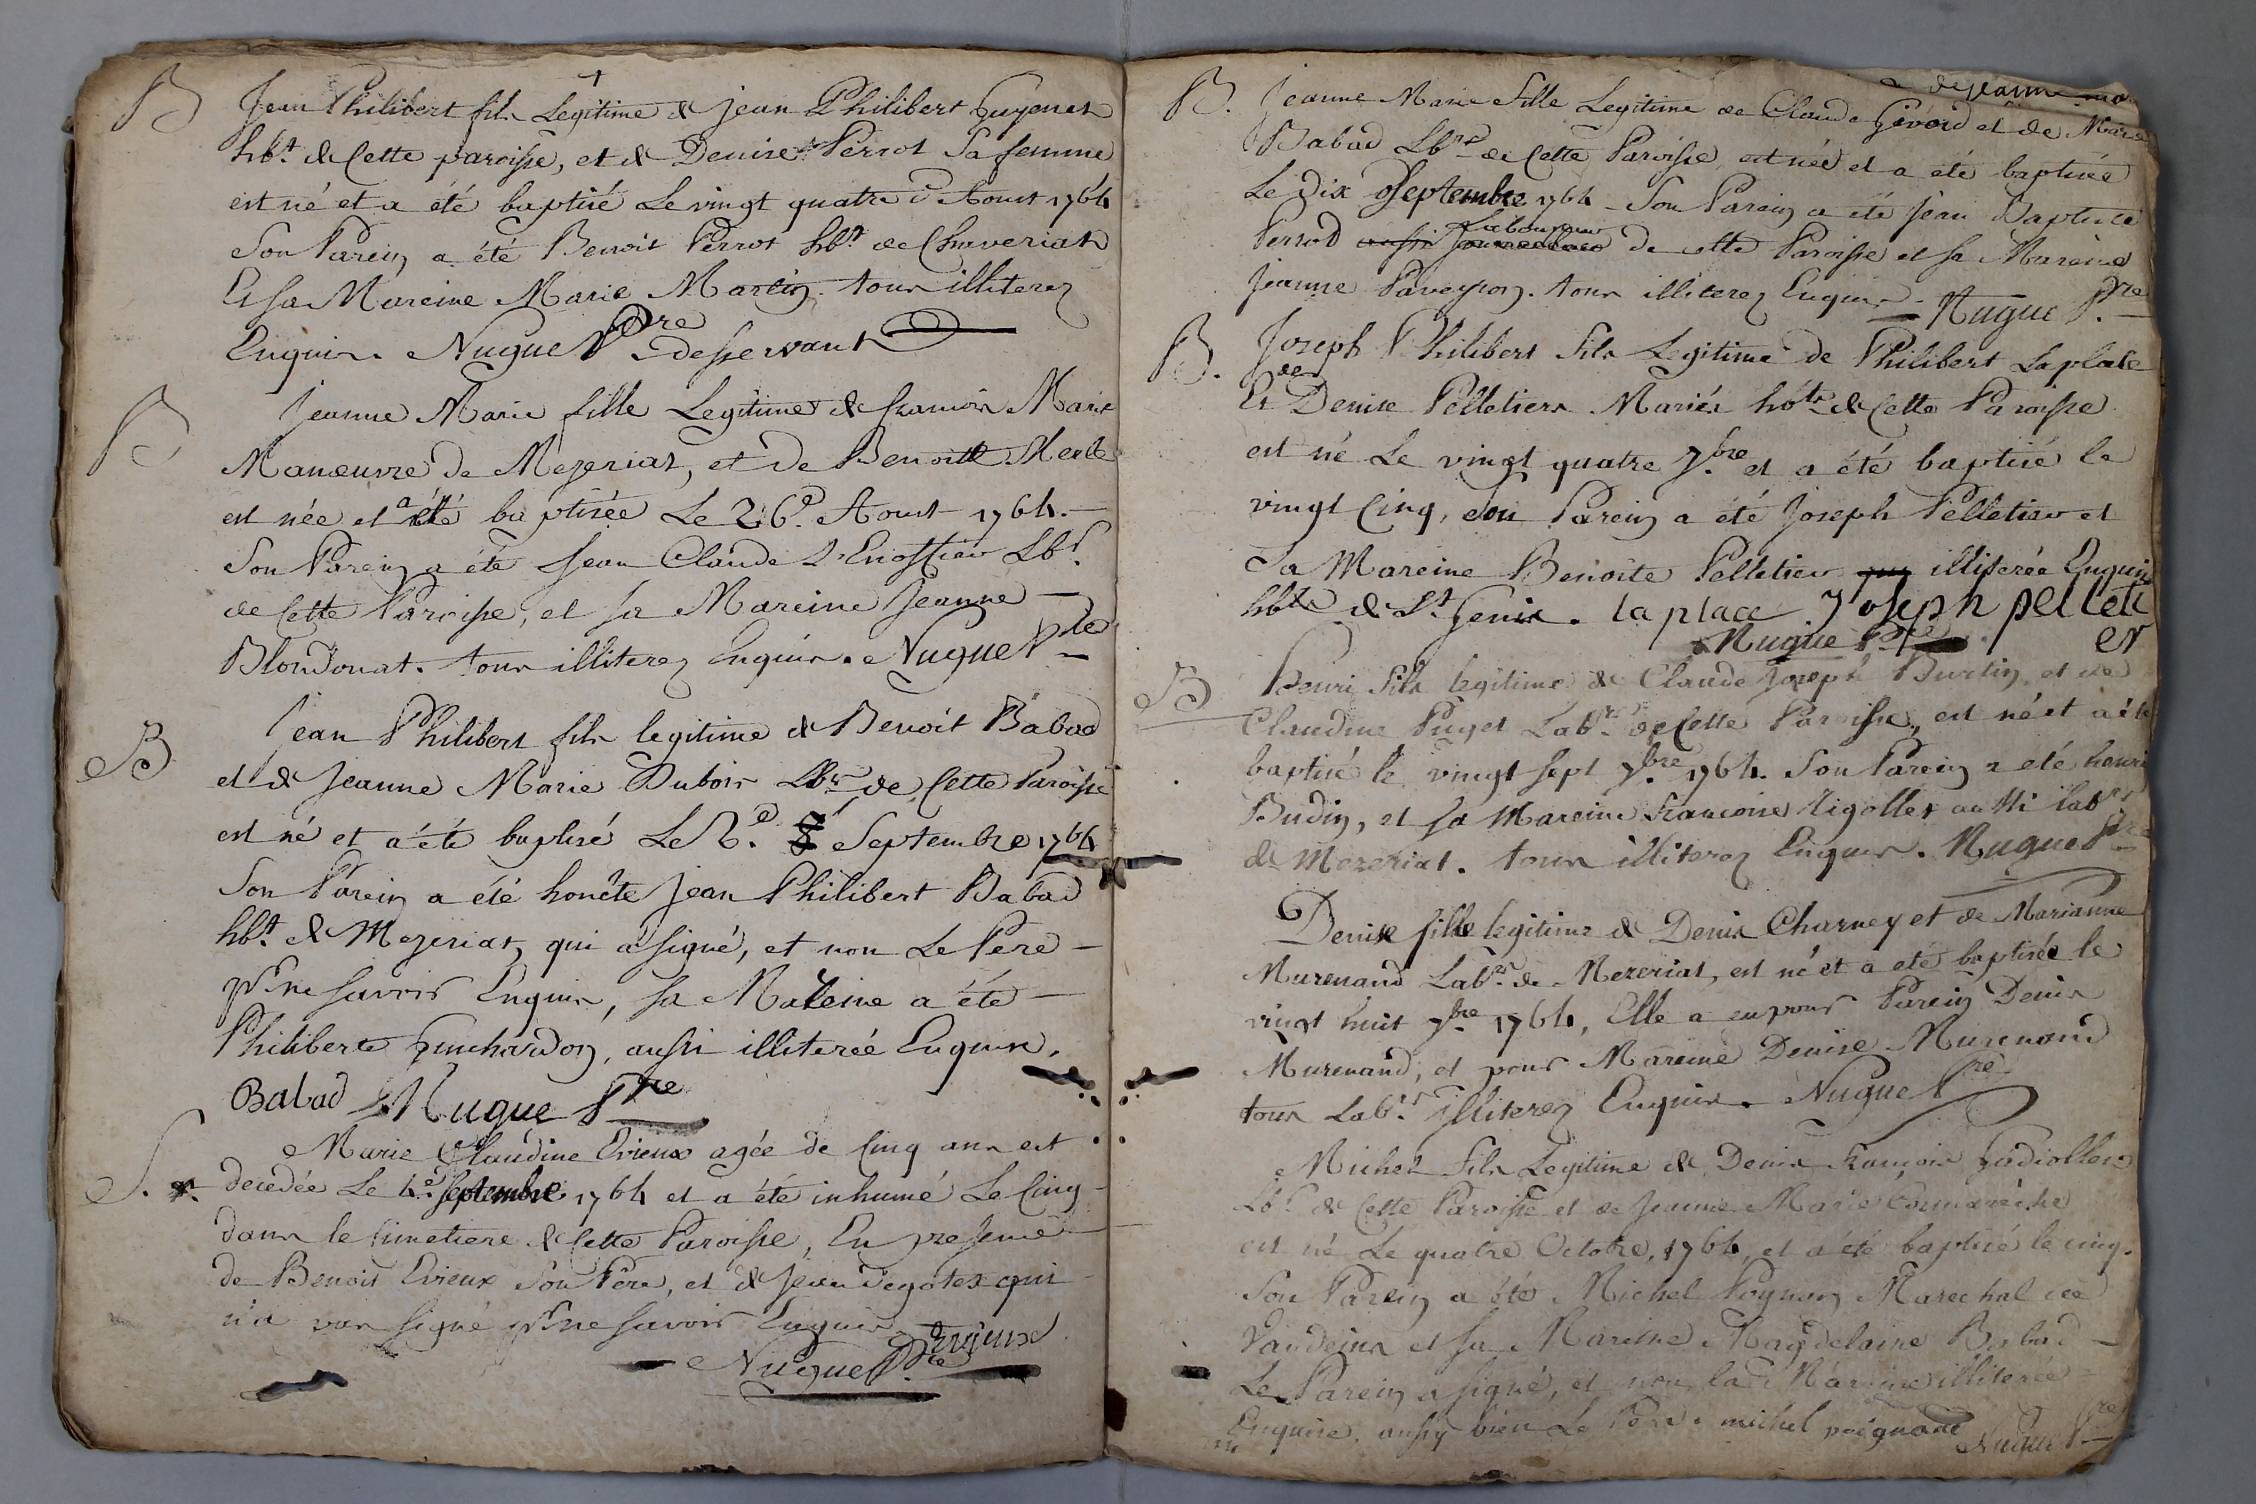 B
Jean Philibert fils Legitime de jean Philibert Guyenet
hbt. de Cette paroisse, et de Denise Perrot Sa femme
est né et a été baptisé Le vingt quatre d'Aoust 1764
Son Parein a été Benoit Perrot hbt. de Chaveriat
Et sa Mareine Marie Martin. tous illiterez
Enquis. Nugue Ptre desservant
B
Jeanne Marie fille Legitime de francois Marie
Manœuvre de Mezeriat, et de Benoitte Merle
est née et a été baptisée Le 26e. Aoust 1764.
Son Parein a été Jean Claude Lbr.
de Cette Paroisse, et sa Mareine Jeanne
Blondonat. tous illiterez Enquis. Nugue Ptre
B
Jean Philibert fils legitime de Benoit Babad
et de Jeanne Marie Dubois Lbrs de Cette Paroisse
est né et a été baptisé Le 2e. Septembre 1764
Son Parein a été honête Jean Philibert Babad
hbt. de Mezeriat, qui a signé, et non Le Pere
pr ne savoir Enquis, sa Mareine a été
Philiberte Guichardon, aussi illiterée Enquise.
Babad Nugue Ptre
S.
Marie Claudine Evieux agée de Cinq ans est
decedée Le 4e. septembre 1764 et a été inhumé Le Cinq
dans le Cimetiere de Cette Paroisse, En presence
de Benoit Evieux Son Père, et de Jean qui
n'a pas signé pr ne savoir Enquis. Evieux
Nugue Ptre
de jeanne
B.
Jeanne Marie fille Legitime de Claude et de Marie
Babad Lbrs de Cette Paroisse, est née et a été baptisée
Le dix Septembre 1764 Son Parein a été jean Baptiste
Perrod aussi laboureur de cette Paroisse et sa Mareine
Jeanne Paveyron. tous illiterez Enquis. Nugue Ptre
B.
Joseph Philibert fils Legitime de Philibert Laplace
Et de Denise Pelletier Mariés hbts de Cette Paroisse
est né Le vingt quatre 7bre et a été baptisé le
vingt Cinq, son Parein a été Joseph Pelletier et
Sa Mareine Benoite Pelletier illiterée Enquise
hbts de St. Genis. la place Joseph pelleti
er
Nugue Ptre
B
Henri fils legitime de Claude Joseph Burtin, et de
Claudine Puget Labrs de Cette Paroisse, est né et a été
baptisé le vingt sept 7bre 1764. Son Parein a été henri
Budin, et sa Mareine Francoise Rigollet aussi labrs
de Mezeriat. tous illiterez Enquis. Nugue Ptre
Denise fille legitime de Denis Charney et de Marianne
Murenand Labrs de Mezeriat, est né et a été baptisée le
vingt huit 7bre 1764, Elle a eu pour Parein Denis
Murenand, et pour Mareine Denise Murenand
tous Labrs. illiterez Enquis. Nugue Ptre
Michel fils Legitime de Denis François
Lbr. de Cette Paroisse et de Jeanne Marie
est né Le quatre Octobre, 1764, et a été baptisé le cinq.
Son Parein a été Michel Marechal de
Vandeins et sa Mareine Magdelaine Babad
Le Parein a signé, et non la Mareine illiterée
Enquise. aussy bien Le Père. michel poignant Nugue Ptre